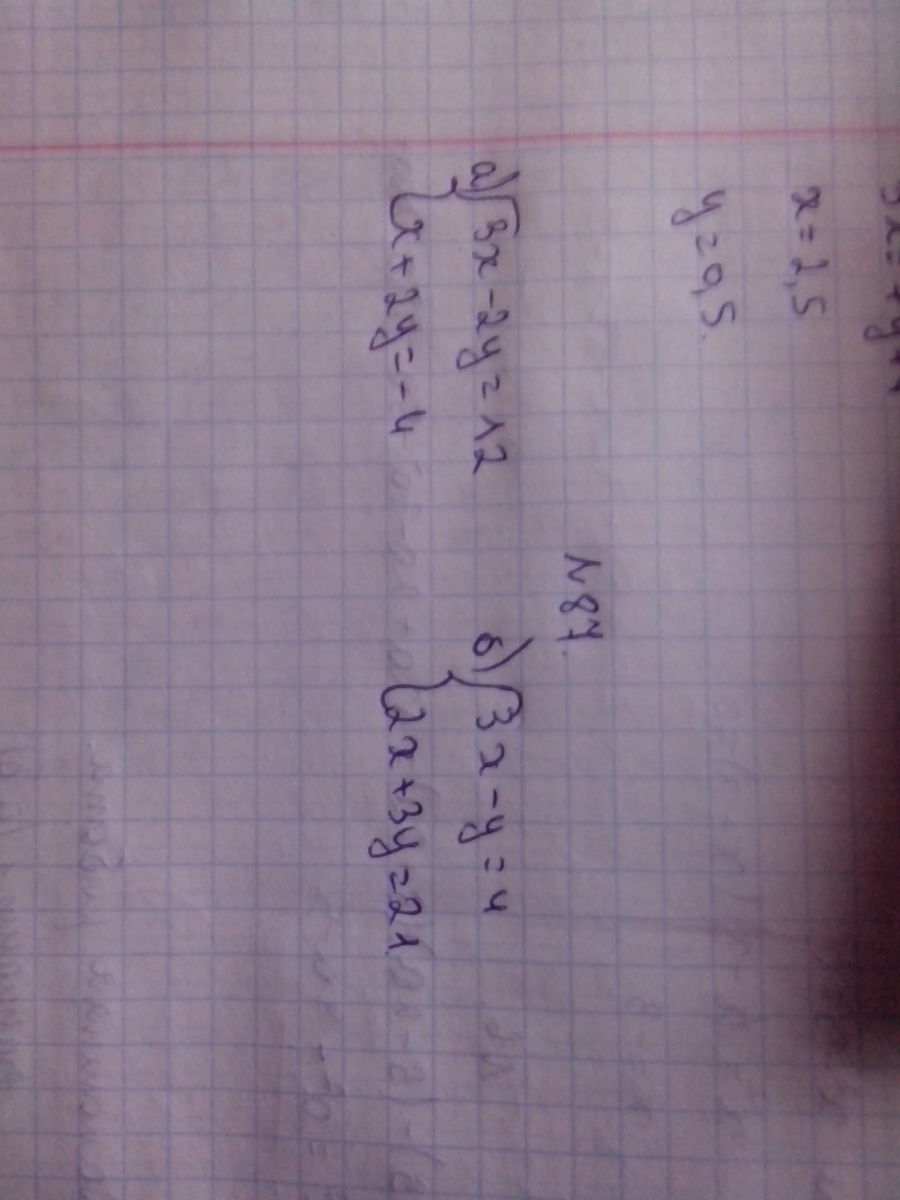 x = 2,5
y = 0,5.
N87.
а) { 3x - 2y = 12
{ x + 2y = -4
б) { 3x - y = 4
{ 2x + 3y = 21